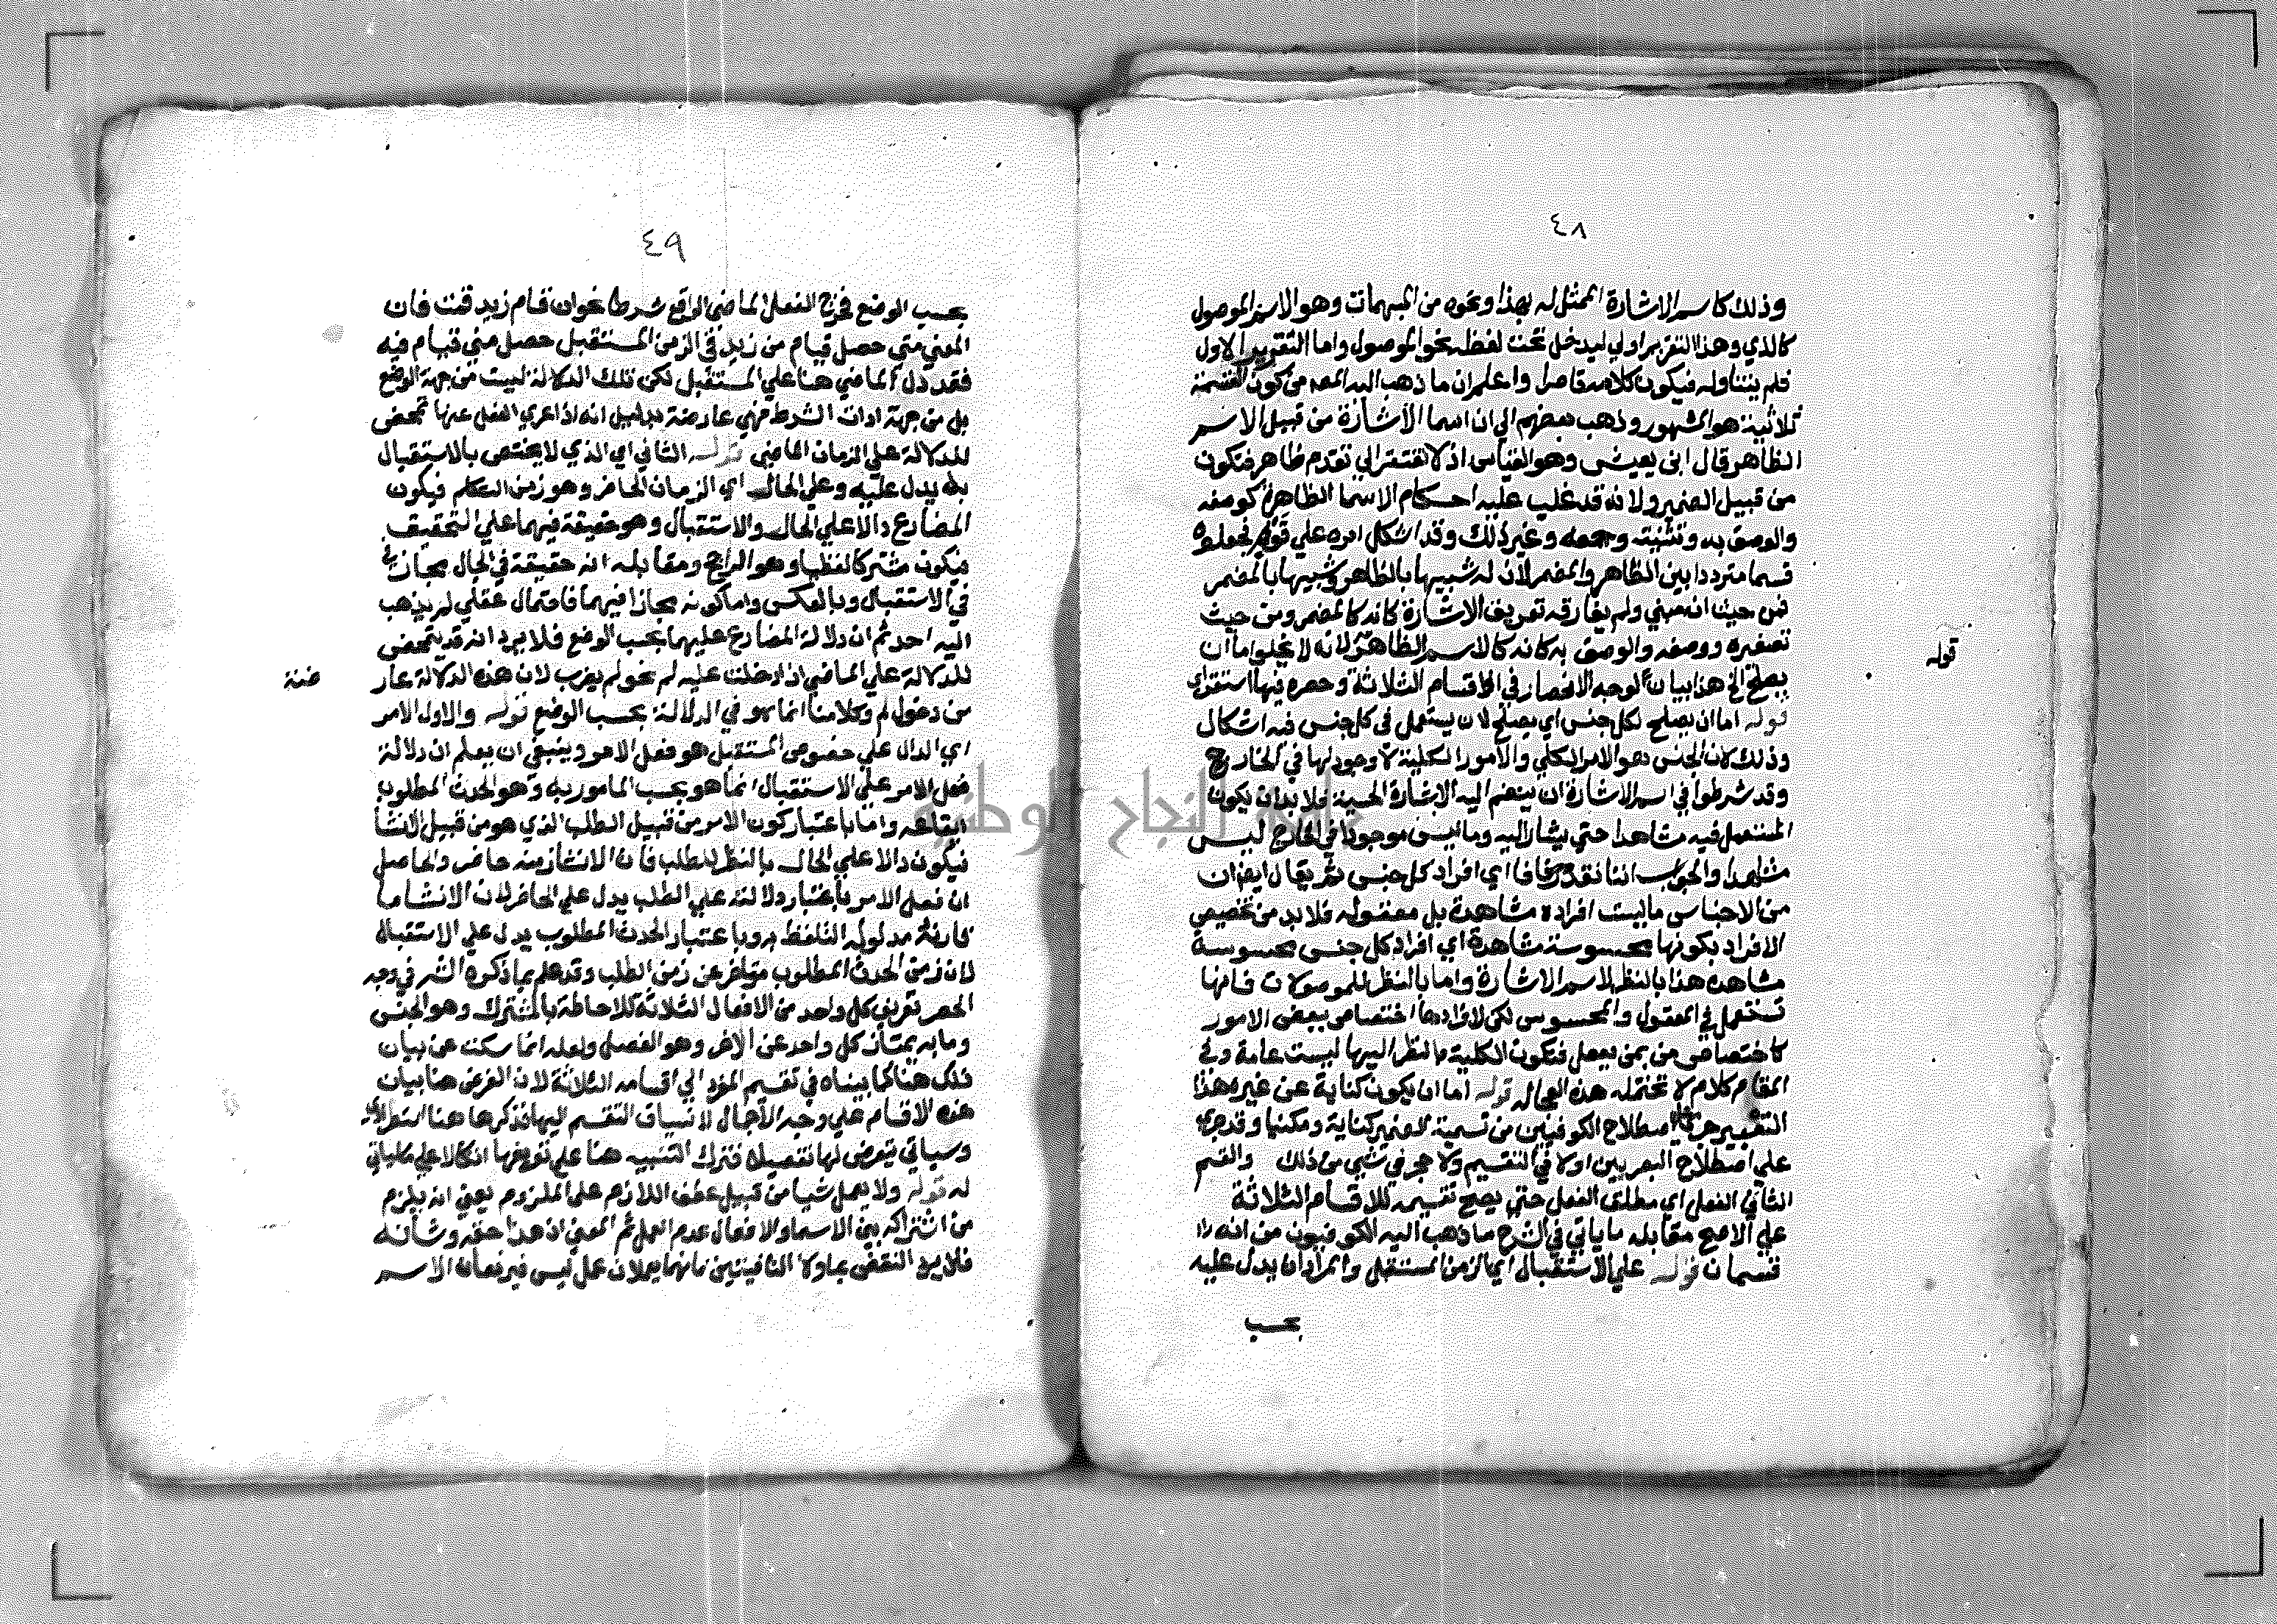 ٤٨
وذلك كاسم الاشارة الممثل له بهذا ونحوه من المبهمات وهو الاسم الموصول
كالذي وهذا التقرير اولي ليدخل تحت لفظ نحو الموصول واما التقرير الاول
فلم يتناوله فيكون كلامه قاصرا واعلم ان ما ذهب اليه المصه من كون القسمة
ثلاثية هو المشهور وذهب بعضهم الي ان اسما الاشارة من قبيل الاسم
الظاهر قال ابن يعيش وهو القياس اذ لا تفتقر الي تقدم ظاهر فتكون
من قبيل الضمير ولانه قد غلب عليه احكام الاسما الظاهرة كوصفه
والوصف به وتثنيته وجمعه وغير ذلك وقد اشكل امره علي قوم فجعلوه
قسما مترددا بين الظاهر والمضمر لان له شبيها بالظاهر وشبيها بالمضمر
فمن حيث انه مبني ولم يفارقه تعريف الاشارة كانه كالمضمر ومن حيث
تصغيره ووصفه والوصف به كانه كالاسم الظاهر لانه لا يخلوا ما ان
قوله
يصلح الخ هذا بيان لوجه الانحصار في الاقسام الثلاثة وحصره فيها استقراي
قوله اما ان يصلح لكل جنس اي يصلح لان يستعمل في كل جنس فيه اشكال
وذلك لان الجنس هو الامر الكلي والامور الكلية لا وجود لها في الخارج
وقد شرطوا في اسم الاشارة ان ينضم اليه الاشارة الحسية فلا بد ان يكون
المستعمل فيه مشاهدا حتي يشار اليه وما ليس موجودا في الخارج ليس
مشاهدا والجواب اننا نقدر مضافا اي افراد كل جنس ثم يقال ايضا ان
من الاجناس ما ليست افراده مشاهدة بل معقوله فلا بد من تخصيص
الافراد بكونها محسوسة مشاهدة اي افراد كل جنس محسوسة
مشاهده هذا بالنظر لاسم الاشارة واما بالنظر للموصولات فانها
تستعمل في المعقول والمحسوس لكن لافرادها اختصاص ببعض الامور
كاختصاص من بمن يعقل فتكون الكلية بالنظر اليها ليست عامة وفي
المقام كلام لا تحتمله هذه العجاله قوله اما ان يكون كناية عن غيره هذا
التعبير هو اصطلاح الكوفيين من تسمية الضمير كناية ومكنيا وقد جري
علي اصطلاح البصريين اولا في التقسيم ولا حجر في شيي من ذلك والقسم
الثاني الفعل اي مطلق الفعل حتي يصح تقسيمه للاقسام الثلاثة
علي الاصح مقابله ما ياتي في الشرح ما ذهب اليه الكوفيون من انه
قسمان قوله علي الاستقبال اي الزمن المستقبل والمراد ان يدل عليه
بحسب
٤٩
بحسب الوضع فخرج الفعل الماضي الواقع شرطا نحو ان قام زيد قمت فان
المعني متي حصل قيام من زيد في الزمن المستقبل حصل مني قيام فيه
فقد دل الماضي هنا علي المستقبل لكن تلك الدلالة ليست من جهة الوضع
بل من جهة ادات الشرط فهي عارضة بدليل انه اذا عري الفعل عنها تمحض
للدلالة علي الزمان الماضي قوله الثاني اي الذي لا يختص بالاستقبال
بل يدل عليه وعلي الحال اي الزمان الحاضر وهو زمن التكلم فيكون
المضارع دالا علي الحال والاستقبال وهو حقيقة فيهما علي التحقيق
فيكون مشتركا لفظيا وهو الراجح ومقابله انه حقيقة في الحال مجاز
في الاستقبال وبالعكس واما كونه مجازا فيهما فاحتمال عقلي لم يذهب
اليه احد ثم ان دلالة المضارع عليهما بحسب الوضع فلا يرد انه قد يتمحض
للدلالة علي الماضي اذا دخلت عليه لم نحو لم يضرب لان هذه الدلالة عار
ضة
من دخول لم وكلامنا انما هو في الدلالة بحسب الوضع قوله والاول الامر
اي الدال علي خصوص المستقبل هو فعل الامر وينبغي ان يعلم ان دلالة
فعل الامر علي الاستقبال انما هو بحسب المامور به وهو الحدث المطلوب
ايقاعه واما باعتبار كون الامر من قبيل الطلب الذي هو من قبيل الانشا
فيكون دالا علي الحال بالنظر للطلب فان الانشا زمنه حاضر والحاصل
ان فعل الامر باعتبار دلالته علي الطلب يدل علي الحاضر لان الانشا ما
قارنه مدلوله التلفظ به وباعتبار الحدث المطلوب يدل علي الاستقبال
لان زمن الحدث المطلوب متاخر عن زمن الطلب وقد علم بما ذكره الشر في وجه
الحصر تعريف كل واحد من الافعال الثلاثة للاحاطة بالمشترك وهو الجنس
وما به يمتاز كل واحد عن الاخر وهو الفصل ولعله انما سكت عن بيان
ذلك هنا كما بيناه في تقسيم المؤد الي اقسامه الثلاثة لان الغرض هنا بيان
هذه الاقسام علي وجه الاجمال لانسياق التقسيم اليها فذكرها هنا استطرادي
وسياتي يتعرض لها تفصيلا فترك التنبيه هنا علي تعريفها اتكالا علي ما ياتي
له قوله ولا يعمل شيا من قبيل عطف اللازم علي الملزوم يعني انه يلزم
من اشتراكه بين الاسما والافعال عدم العمل ثم المعني اذ هذا حقه وشانه
فلا يرد النقض بما ولا النافيتين فانهما يعملان عمل ليس فيرفعان الاسم